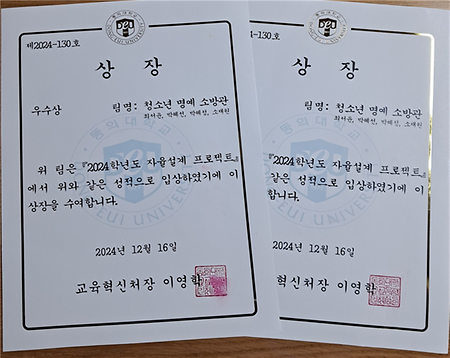 제2024-130호
상 장
우수상
팀명: 청소년 명예 소방관
최서윤, 박혜선, 박혜선, 소채원
위 팀은『2024학년도 자율설계 프로젝트』
에서 위와 같은 성적으로 입상하였기에 이
상장을 수여합니다.
2024년 12월 16일
교육혁신처장 이영학
동의대학교
DONG-EUI UNIVERSITY
-2024-130호
상 장
팀명: 청소년 명예 소방관
최서윤, 박혜선, 박혜선, 소채원
『2024학년도 자율설계 프로젝트』
같은 성적으로 입상하였기에 이
합니다.
2024년 12월 16일
혁신처장 이영학